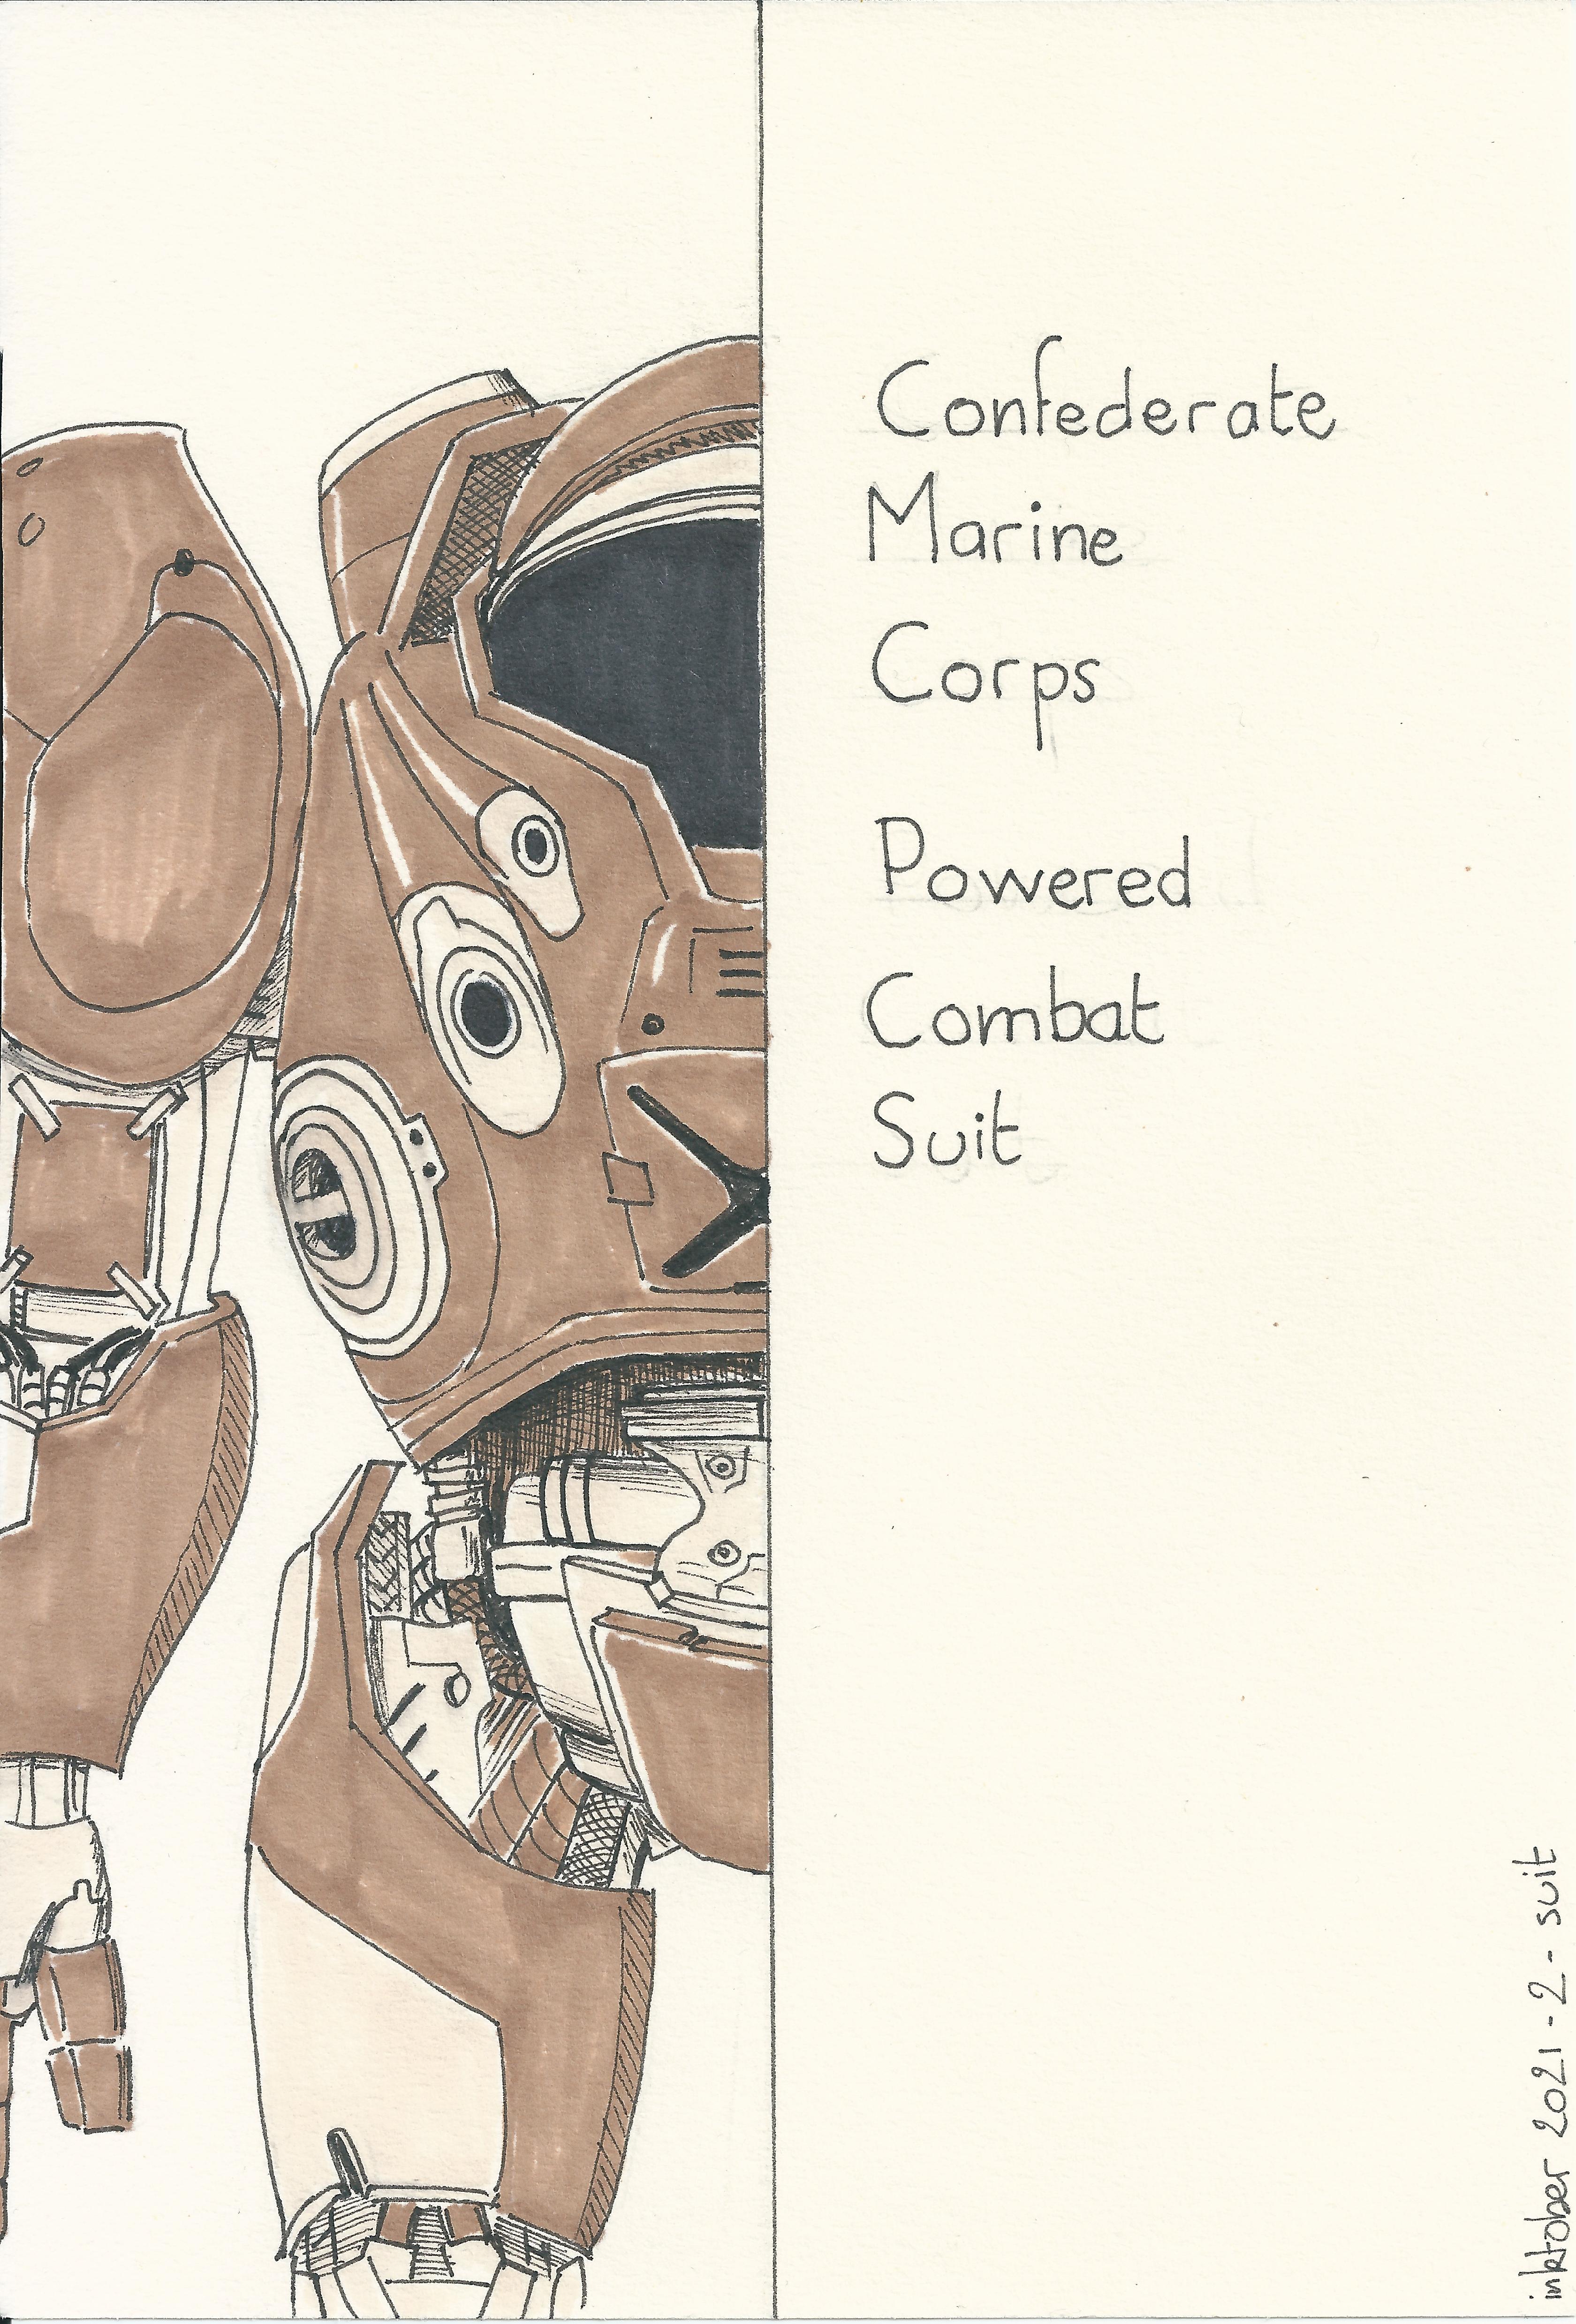 Confederate
Marine
Corps
Powered
Combat
Suit
inktober 2021 - 2 - suit